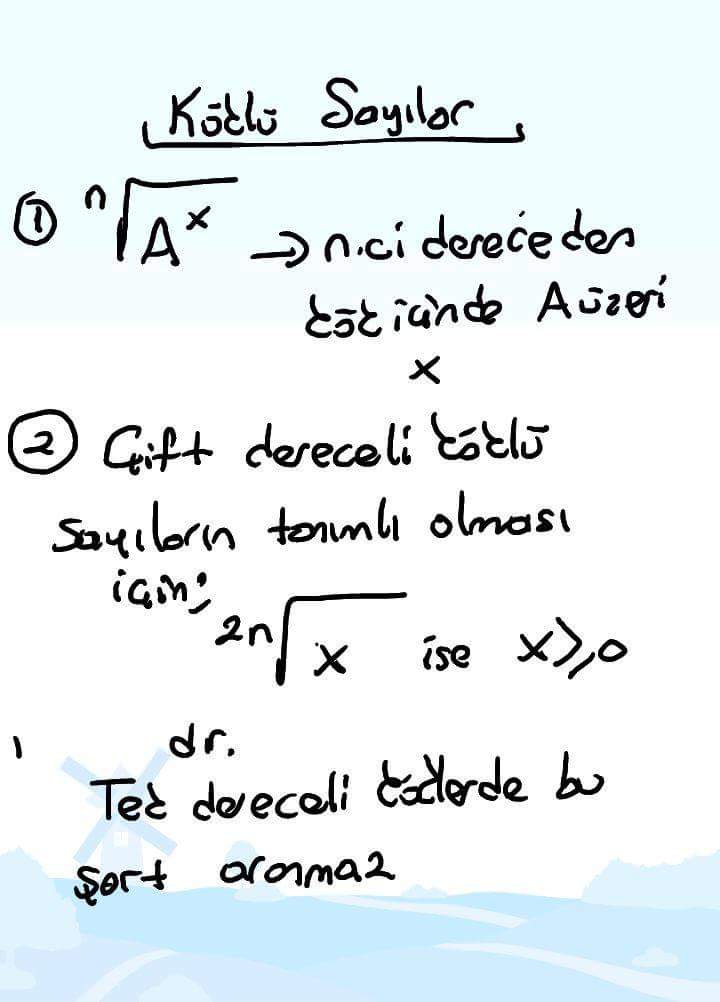 Köklü Sayılar
① ⁿ√Aˣ → n.ci dereceden
kök içinde A üzeri
x
② Çift dereceli köklü
sayıların tanımlı olması
için;
²ⁿ√x ise x⩾0
dr.
Tek dereceli köklerde bu
şart aranmaz